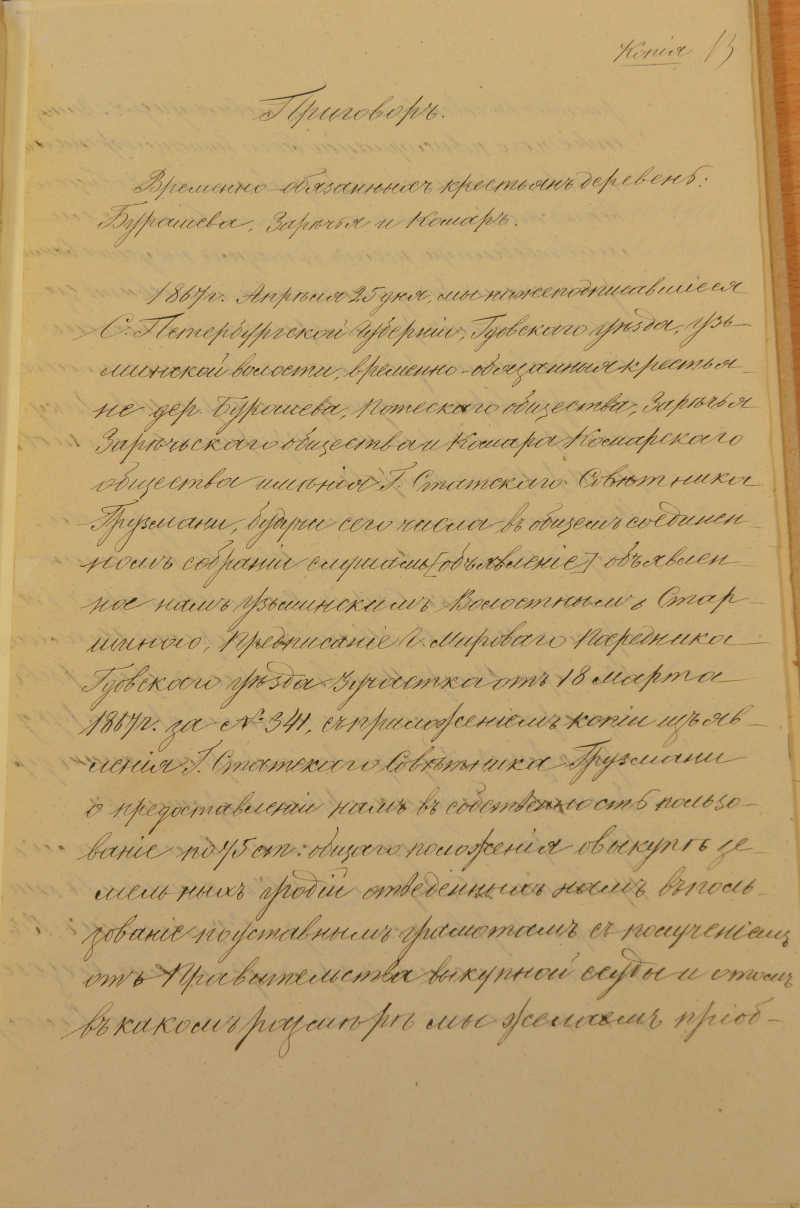 Копія 13
Приговоръ.
Временно-обязанныхъ крестьянъ деревень:
Бурашева, Зарѣчья и Комаръ.
1867 г. Апрѣля 25 дня, мы нижеподписавшіеся
С. Петербургской губерніи, Гдовскаго уѣзда, Узь-
минской волости, временно-обязанныя крестья-
не дер. Бурашева, Потескаго общества, Зарѣчья
Зарѣчьскаго общества и Комара Комарскаго
общества имѣнія Г. Статскаго Совѣтника
Грузмани, будучи сего числа въ общемъ соединен-
номъ собраніи слушали [объявленіе] объявлен-
ное намъ Узьминскимъ Волостнымъ Стар-
шиною, Предписаніе Г. Мироваго Посредника
Гдовскаго уѣзда 3 участка отъ 18 Марта
1867 г. за № 341, съ приложеніемъ копіи изъяв-
ленія Г. Статскаго Совѣтника Грузмани
о предоставленіи намъ въ собственность пользо-
ваніе по 75 ст: общаго положенія о выкупѣ зе-
мельныхъ угодій отведенныхъ намъ въ поль-
зованіе по уставнымъ грамотамъ съ полученіемъ
отъ Правительства выкупной ссуды и о томъ
въ какомъ размѣрѣ мы желаемъ пріоб-